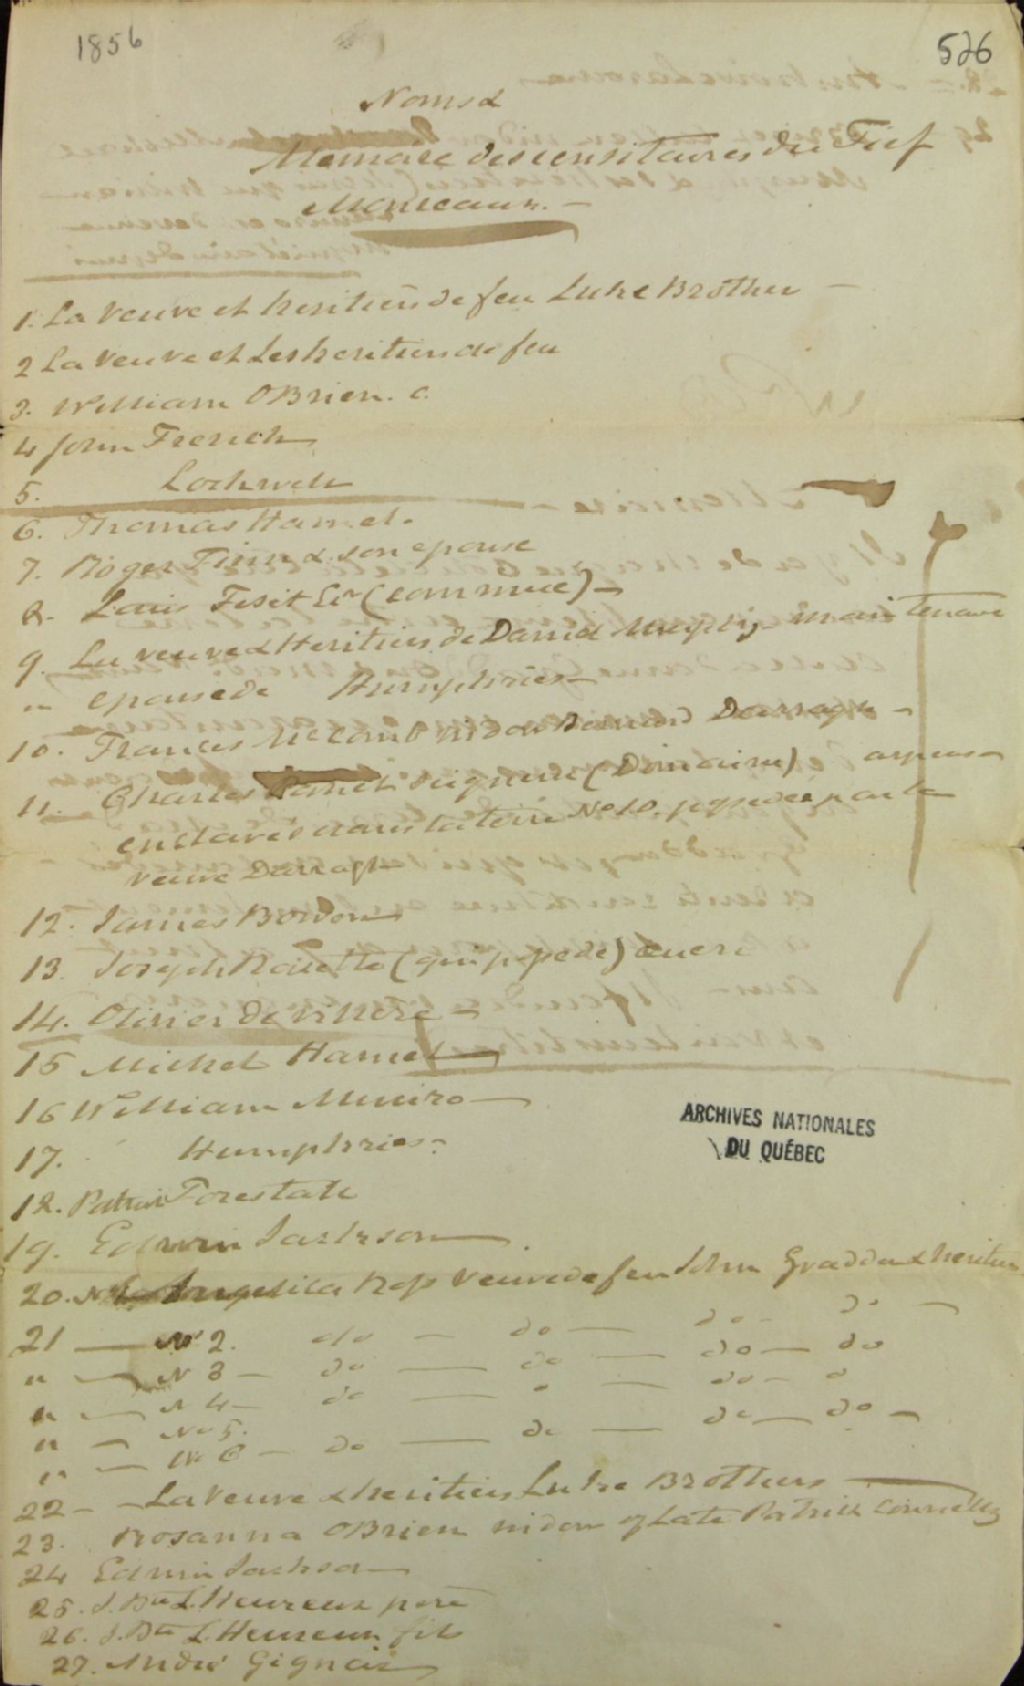 1856
526
Noms &
Memoire des censitaires du Fief
Monceaux. —
1. La Veuve et heritiers de feu Luke Brother —
2 La Veuve et Les heritiers de feu
3. William OBrien. c.
4 John French
5. Lockwell
6. Thomas Hamel.
7. Roger Finn & son epouse
8. Louis Fiset Er (commué) —
9. La veuve & Heritiers de Daniel Murphy — maintenant
" epouse de Humphries —
10. Frances McComb widow Darragh —
11. Charles Panet Seigneur (Domaine) arpens
enclavés dans la terre No 10. possedée par la
veuve Darragh
12. James Bowden
13. Joseph Routte (qui possede)
14. Olivier de Villere —
15 Michel Hamel
16 William Munro —
17. Humphries.
18. Patrick Forestate
19. Edwin Jackson
20. No 1 Angelica veuve de feu John Graddon & heritiers
21 — No 2. do — do — do — do —
" — N 3 — do — do — do — do
" — N 4 — do — " — do — "
" — No 5.
" — No 6 — do — do — do — do —
22 — La Veuve & heritiers Luke Brothers —
23. Rosanna OBrien widow of Late Patrick Connelly
24 Edwin Jackson
25. J. Bte L'Heureux pere
26. J. Bte L'Heureux fils
27. André Gignac
ARCHIVES NATIONALES
DU QUÉBEC